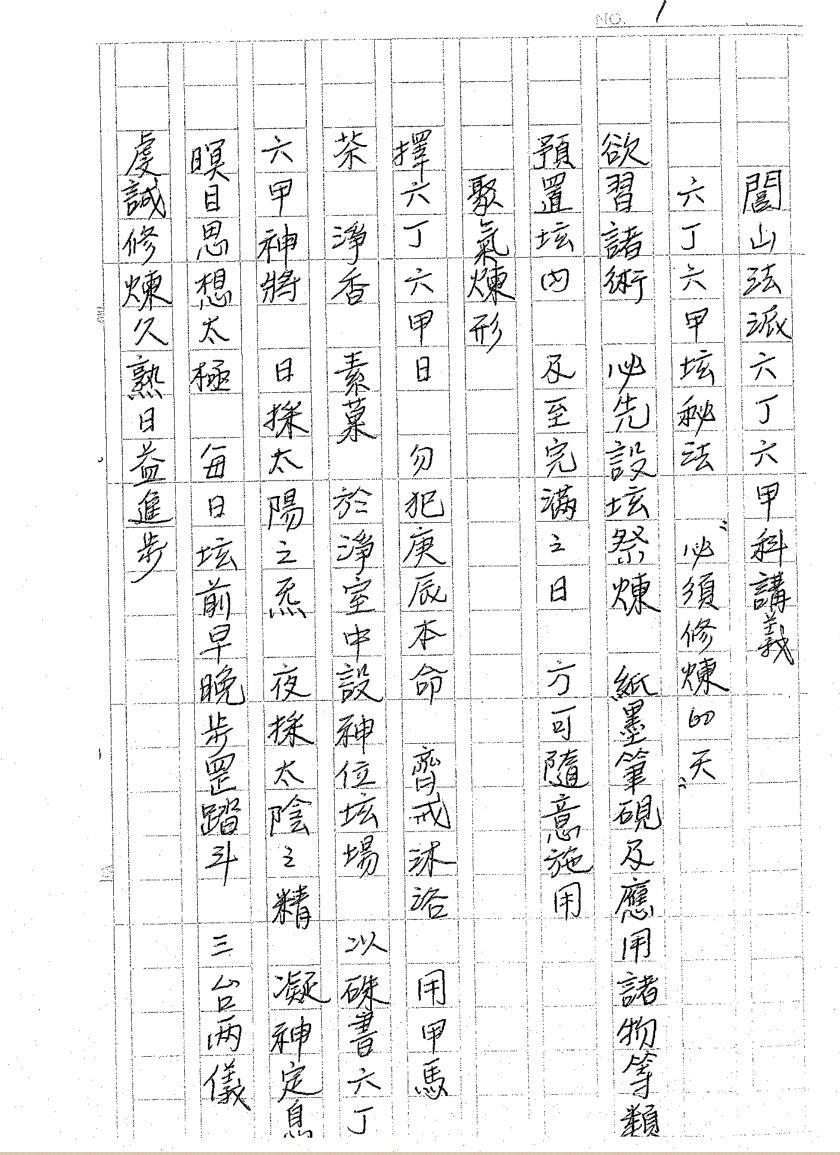 NO. 1
閭山法派六丁六甲科講義
六丁六甲坛秘法 〝必須修煉49天〞
欲習諸術 必先設坛祭煉 紙墨筆硯及應用諸物等類
預置坛內 及至完滿之日 方可隨意施用
聚氣煉形
擇六丁六甲日 勿犯庚辰本命 齊戒沐浴 用甲馬
茶 淨香 素菓 於淨室中設神位坛場 以硃書六丁
六甲神將 日採太陽之炁 夜採太陰之精 凝神定息
瞑目思想太極 每日坛前早晚步罡踏斗 三台兩儀
虔誠修煉久熟日益進步